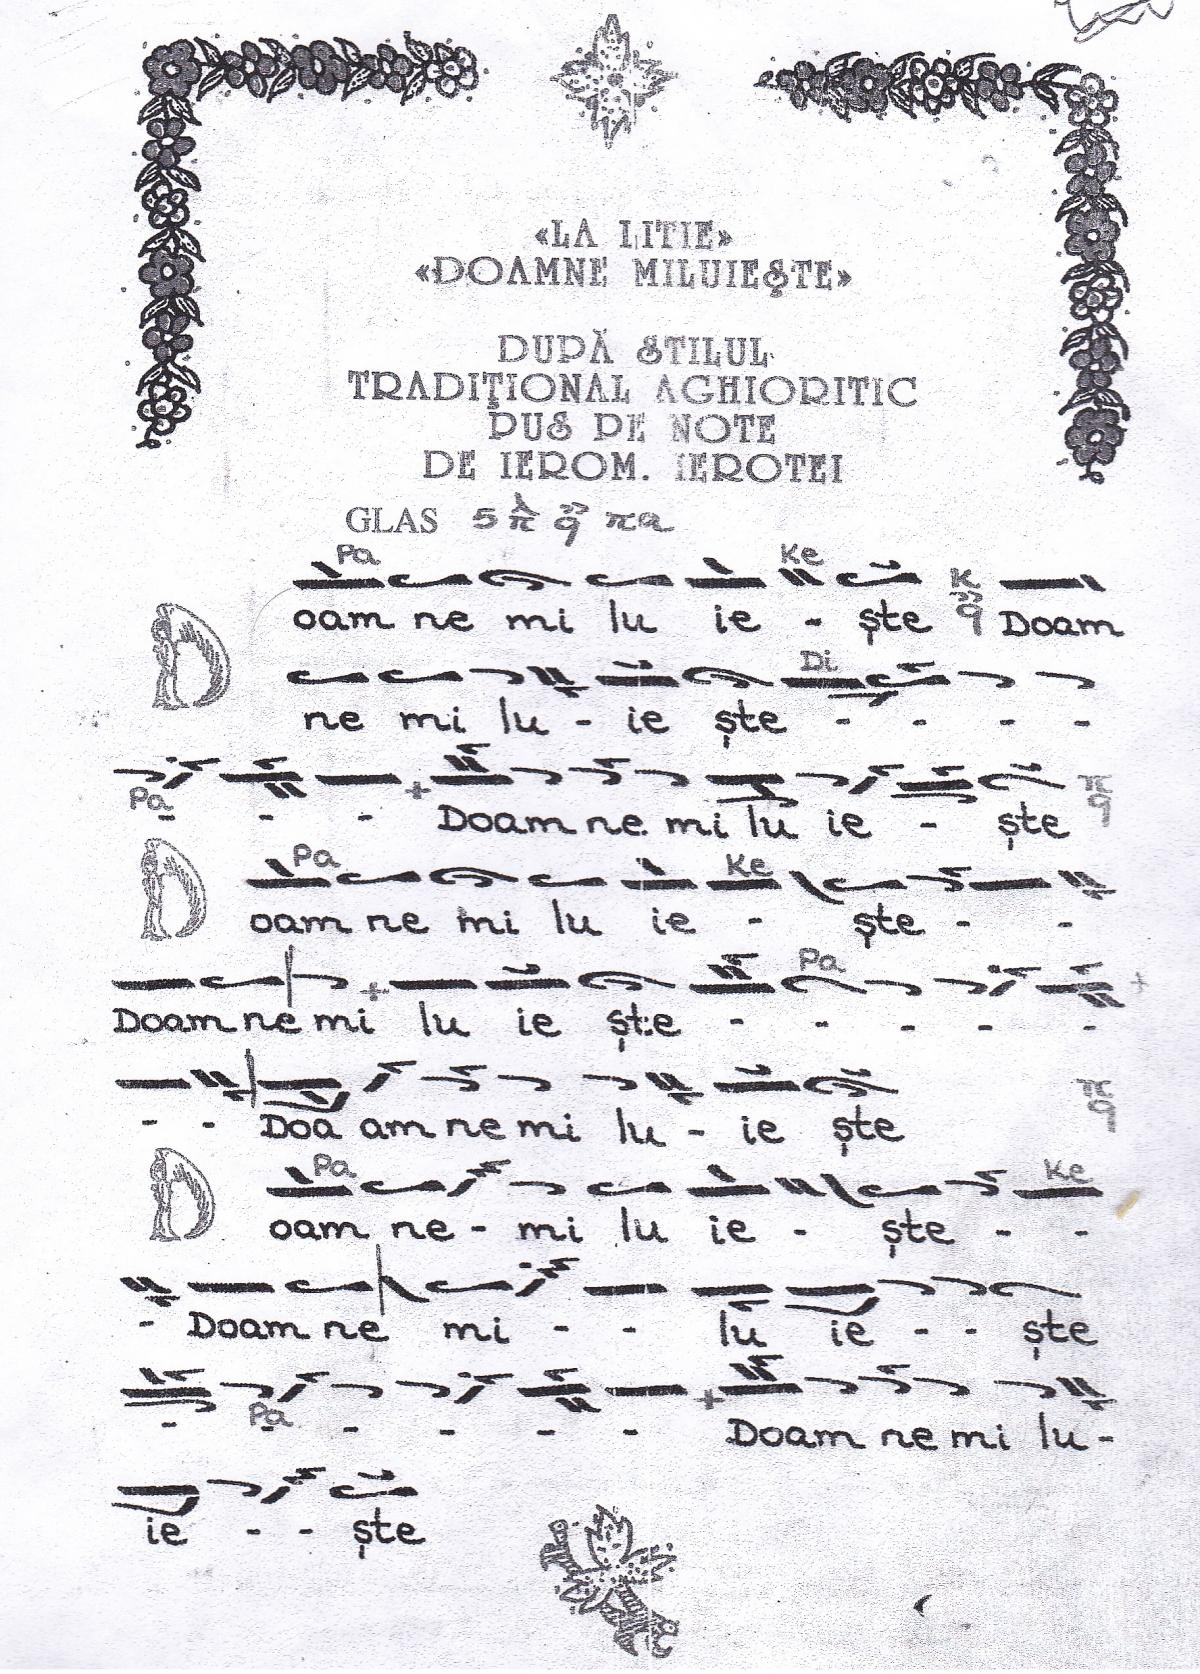 «LA LITIE»
«DOAMNE MILUIEȘTE»
DUPĂ STILUL
TRADIȚIONAL AGHIORITIC
PUS PE NOTE
DE IEROM. IEROTEI
GLAS 5 λ π q πα
Pa Ke
Doam ne mi lu ie - ște K q Doam
Di
ne mi lu - ie ște - - - -
Pa
- - - Doam ne mi lu ie - ște π q
Pa Ke
Doam ne mi lu ie - ște - -
Pa
Doam ne mi lu ie ște - - - - -
- - Doa am ne mi lu - ie ște π q
Pa Ke
Doam ne - mi lu ie - ște - -
- Doam ne mi - - lu ie - - ște
Pa
- - - - - - Doam ne mi lu -
ie - - ște